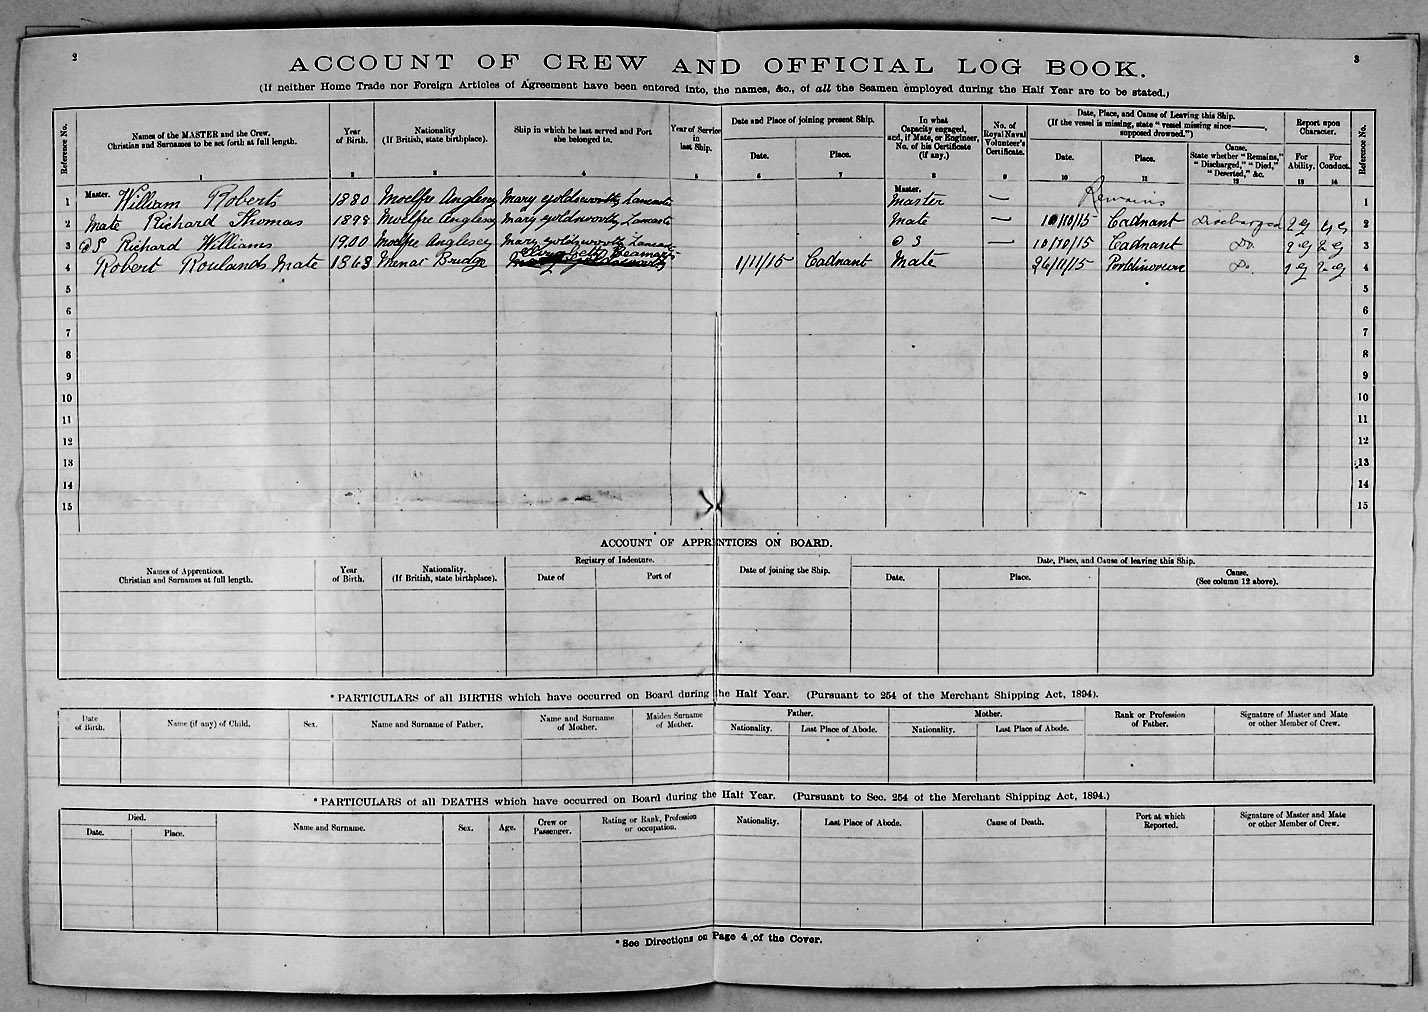 2
3
ACCOUNT OF CREW AND OFFICIAL LOG BOOK.
(If neither Home Trade nor Foreign Articles of Agreement have been entered into, the names, &c., of all the Seamen employed during the Half Year are to be stated.)
Reference No. Names of the MASTER and the Crew. Christian and Surnames to be set forth at full length. Year of Birth. Nationality (If British, state birthplace). Ship in which he last served and Port she belonged to. Year of Service in last Ship. Date and Place of joining present Ship. Date. Place. In what Capacity engaged, and, if Mate, or Engineer, No. of his Certificate (if any.) No. of Royal Naval Volunteer's Certificate. Date, Place, and Cause of Leaving this Ship. (If the vessel is missing, state "vessel missing since ———, supposed drowned.") Date. Place. Cause. State whether "Remains," "Discharged," "Died," "Deserted," &c. Report upon Character. For Ability. For Conduct. Reference No.
1 2 3 4 5 6 7 8 9 10 11 12 13 14
1 Master. William Roberts 1880 Moelfre Anglesey Mary Goldsworthy Lancaster Master. Master — Remains 1
2 Mate Richard Thomas 1898 Moelfre Anglesey Mary Goldsworthy Lancaster Mate — 10/10/15 Cadnant Discharged 2
3 OS Richard Williams 1900 Moelfre Anglesey Mary Goldsworthy Lancaster OS — 10/10/15 Cadnant Do. 3
4 Robert Roulands Mate 1863 Menai Bridge Beamaris 1/11/15 Cadnant Mate 26/11/15 Portdinorwic Do. 4
5 5
6 6
7 7
8 8
9 9
10 10
11 11
12 12
13 13
14 14
15 15
ACCOUNT OF APPRENTICES ON BOARD.
Names of Apprentices. Christian and Surnames at full length. Year of Birth. Nationality. (If British, state birthplace). Registry of Indenture. Date of Port of Date of joining the Ship. Date, Place, and Cause of leaving this Ship. Date. Place. Cause. (See column 12 above).
*PARTICULARS of all BIRTHS which have occurred on Board during the Half Year. (Pursuant to 254 of the Merchant Shipping Act, 1894).
Date of Birth. Name (if any) of Child. Sex. Name and Surname of Father. Name and Surname of Mother. Maiden Surname of Mother. Father. Nationality. Last Place of Abode. Mother. Nationality. Last Place of Abode. Rank or Profession of Father. Signature of Master and Mate or other Member of Crew.
*PARTICULARS of all DEATHS which have occurred on Board during the Half Year. (Pursuant to Sec. 254 of the Merchant Shipping Act, 1894.)
Died. Date. Place. Name and Surname. Sex. Age. Crew or Passenger. Rating or Rank, Profession or occupation. Nationality. Last Place of Abode. Cause of Death. Port at which Reported. Signature of Master and Mate or other Member of Crew.
*See Directions on Page 4 of the Cover.